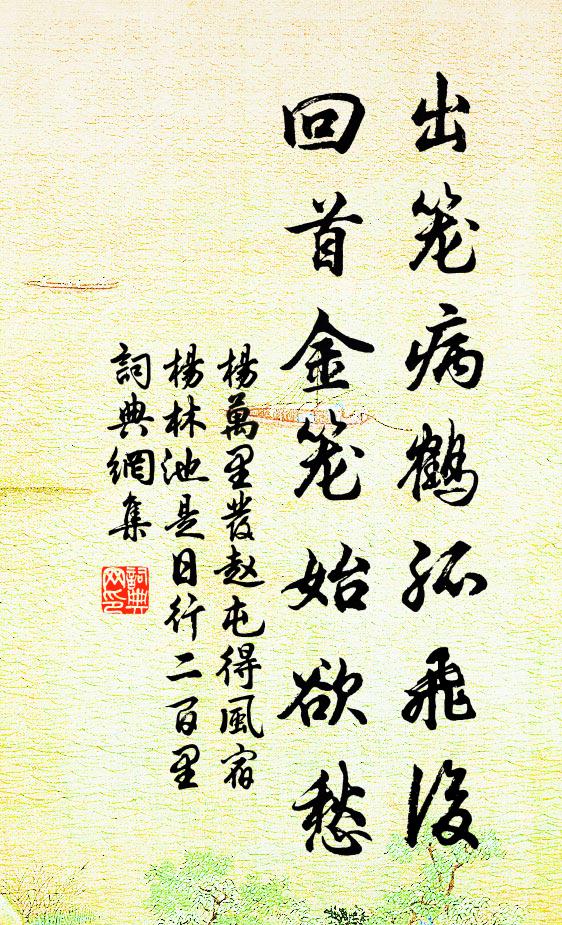 出笼病鹤孤飞後
回首金笼始欲愁
楊萬里發赵屯得風宿
楊林池是日行二百里
詞典網集
詞典
网印